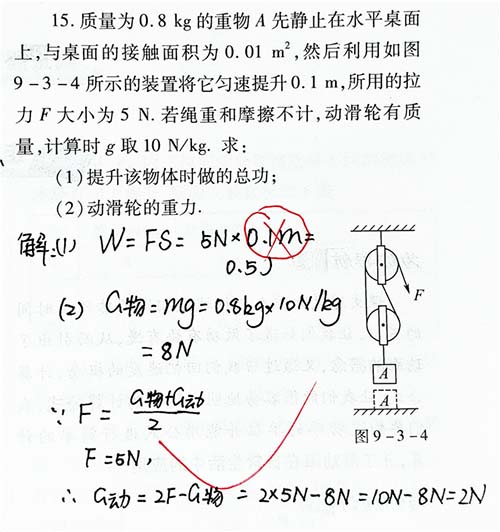 15. 质量为0.8 kg的重物A先静止在水平桌面
上,与桌面的接触面积为0.01 m²,然后利用如图
9-3-4所示的装置将它匀速提升0.1 m,所用的拉
力F大小为5 N.若绳重和摩擦不计,动滑轮有质
量,计算时g取10 N/kg. 求:
(1)提升该物体时做的总功;
(2)动滑轮的重力.
解:(1) W=FS=5N×0.1m=
0.5J
(2) G物=mg=0.8kg×10N/kg
=8N
∵ F=(G物+G动)/2
F=5N,
∴ G动=2F-G物=2×5N-8N=10N-8N=2N
F
A
A
图9-3-4